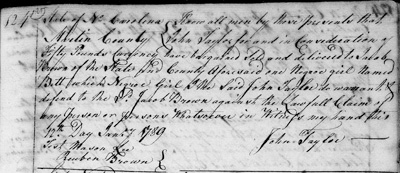 State of No. Carolina } Know all men by these presents that
Martin County } I John Taylor for and in Consideration of
Fifty Pounds Currency have bargained Sell and delivered to Jacob
Brown of the State And County Aforesaid one Negroe girl Named
Bett which Negroe Girl I the Said John Taylor do warrant &
defend to the Sd Jacob Brown against the Lawfull Claim of
any Person or Persons Whatsoever in Witness my hand this
12th Day Jany 1789
John Taylor
Test Mason Lee
Reubon Brown }